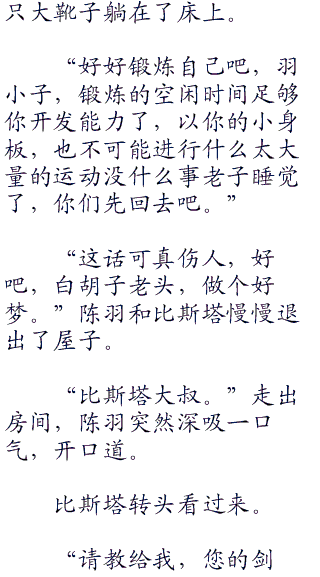 只大靴子躺在了床上。
“好好锻炼自己吧，羽
小子，锻炼的空闲时间足够
你开发能力了，以你的小身
板，也不可能进行什么太大
量的运动没什么事老子睡觉
了，你们先回去吧。”
“这话可真伤人，好
吧，白胡子老头，做个好
梦。”陈羽和比斯塔慢慢退
出了屋子。
“比斯塔大叔。”走出
房间，陈羽突然深吸一口
气，开口道。
比斯塔转头看过来。
“请教给我，您的剑